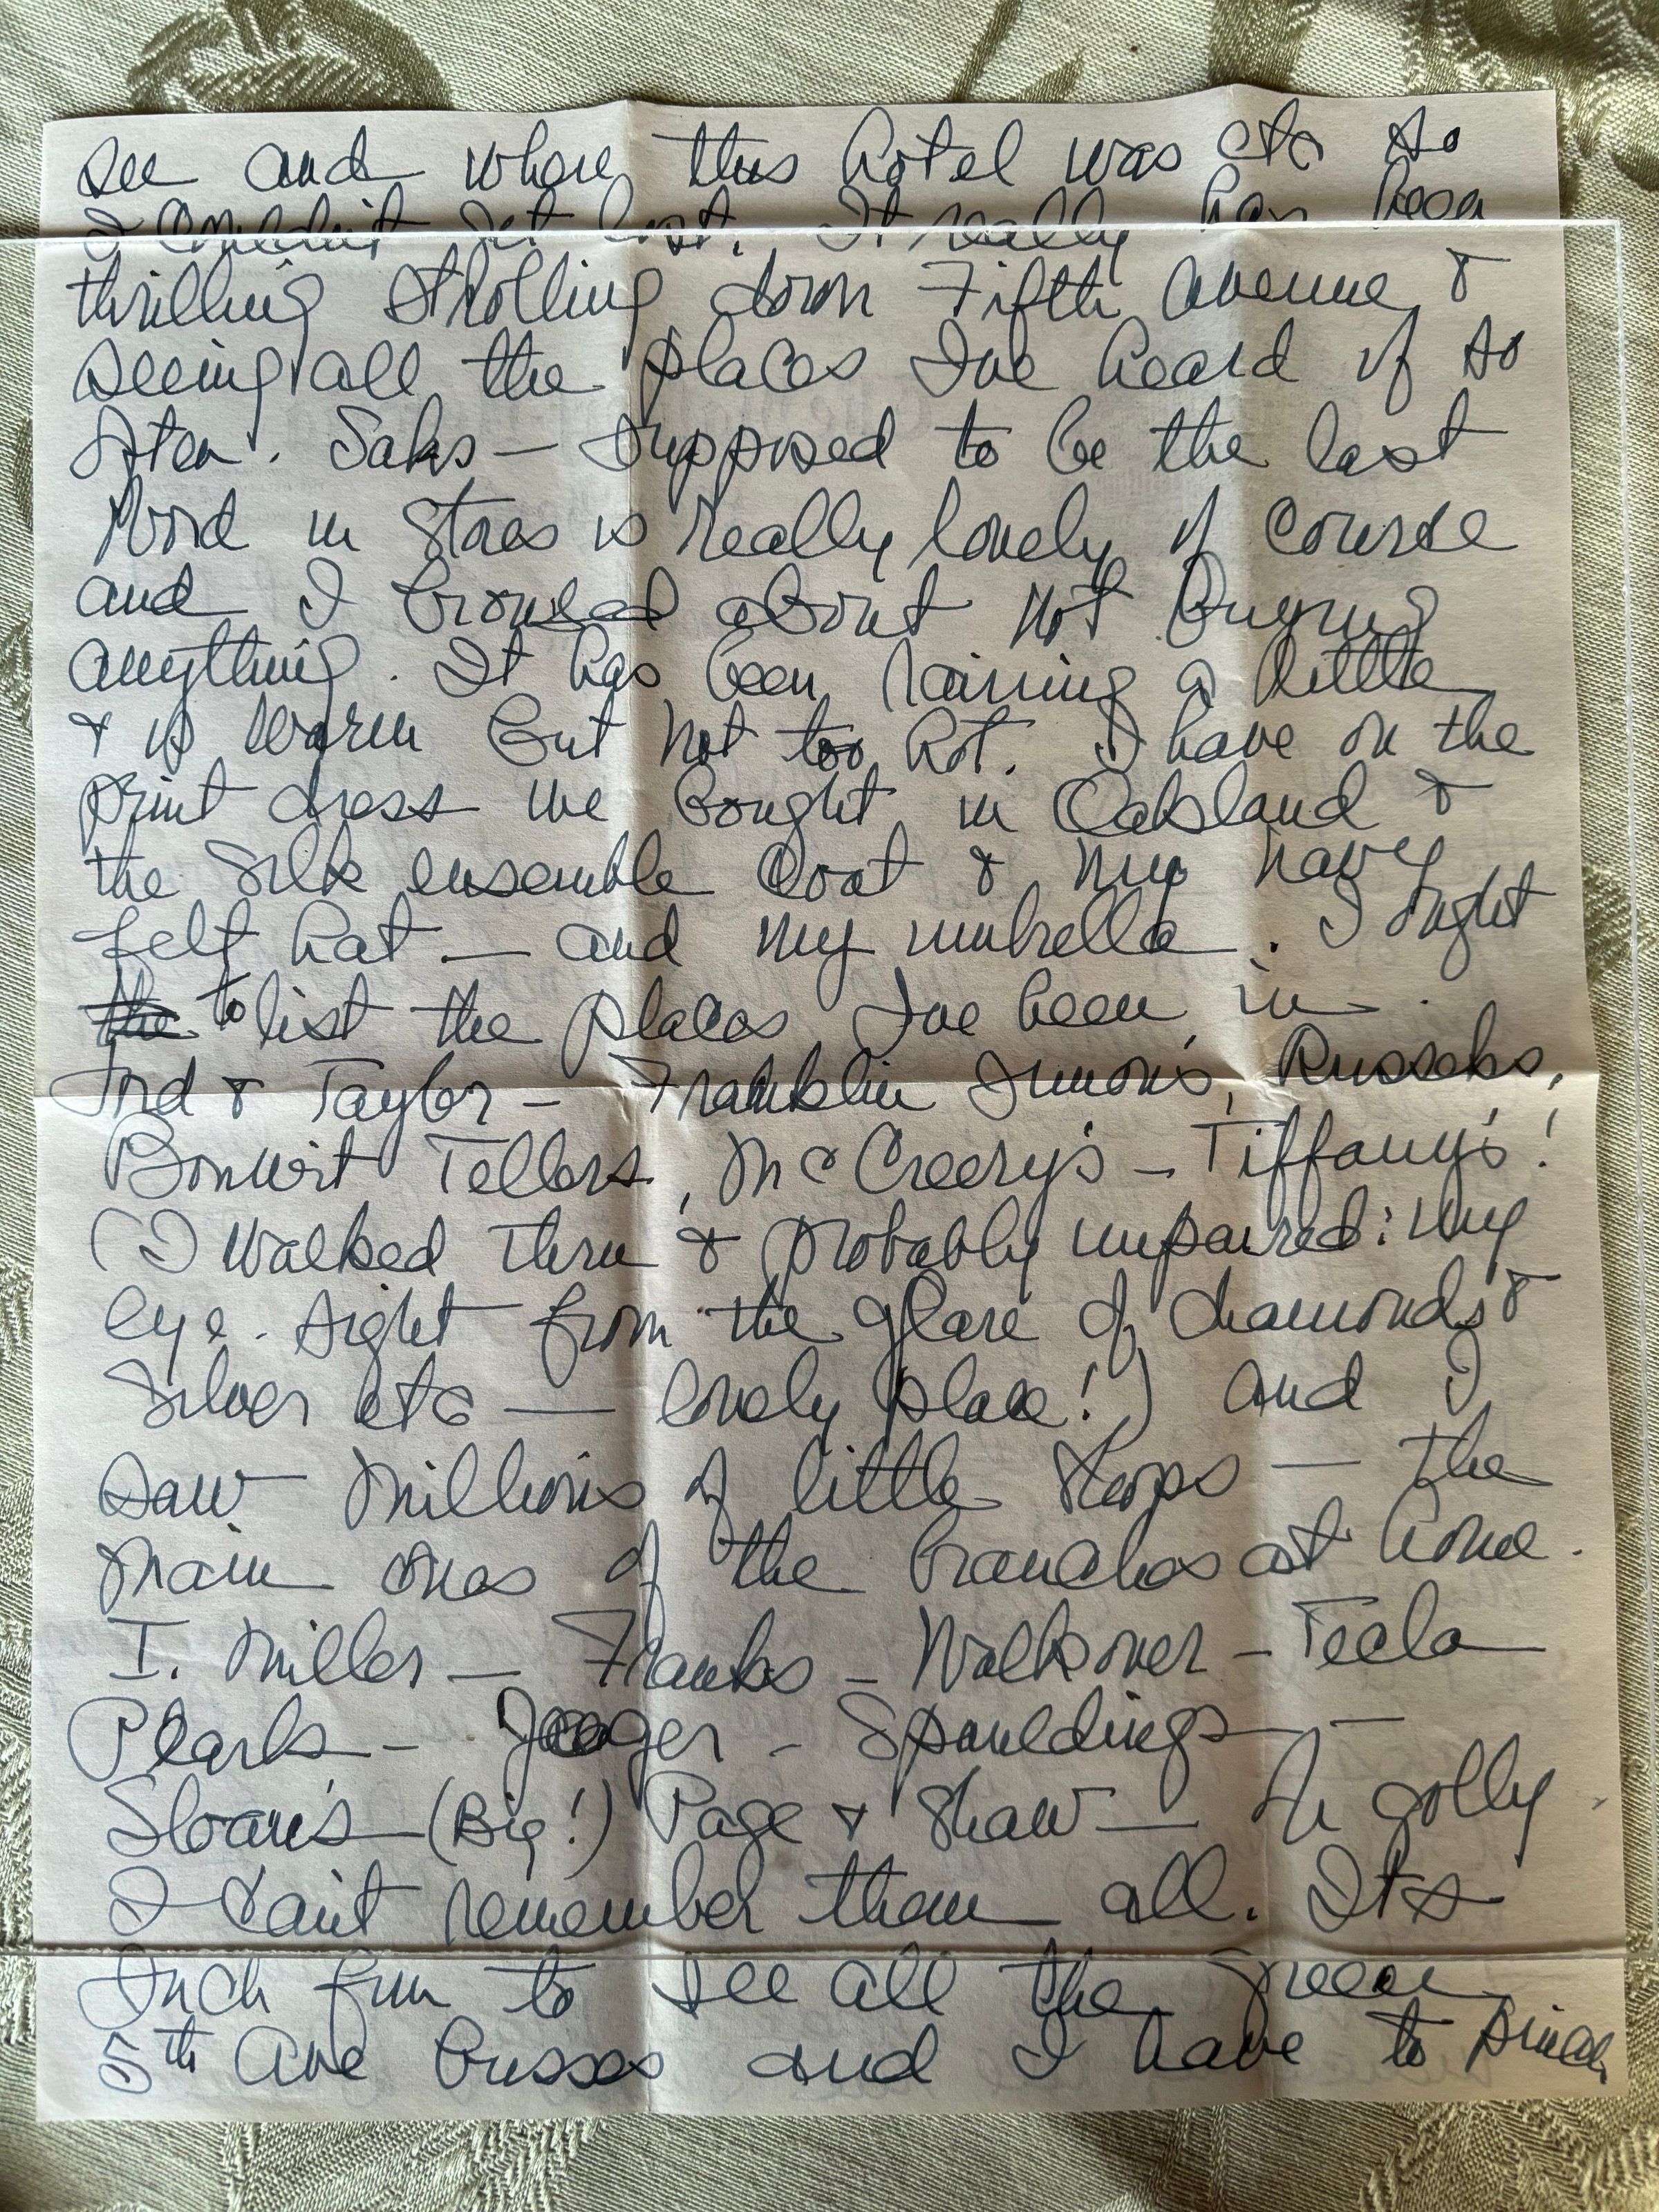 see and where this hotel was etc so
I couldn't get lost. It really has been
thrilling strolling down Fifth Avenue &
seeing all the places I've heard of so
often. Saks — supposed to be the last
Word in Stores is really lovely of course
and I browsed about not buying
anything. It has been raining a little
& is warm but not too hot. I have on the
print dress we bought in Oakland &
the silk ensemble coat & my navy
felt hat — and my umbrella. I ought
the to list the places I've been in.
Lord & Taylor — Franklin Simon's, Russeks,
Bonwit Tellers, McCreery's — Tiffany's!
(I walked thru & probably impaired my
eye-sight from the glare of diamonds &
Silver etc — lovely place!) and I
saw millions of little shops — the
main ones of the branches at home.
I. Miller — Franks — Walkover — Tecla
Pearls — Jaeger — Spauldings —
Sloane's — (Big!) Page & Shaw — Oh golly
I can't remember them all. Its
Such fun to see all the green
5th Ave busses and I have to pinch